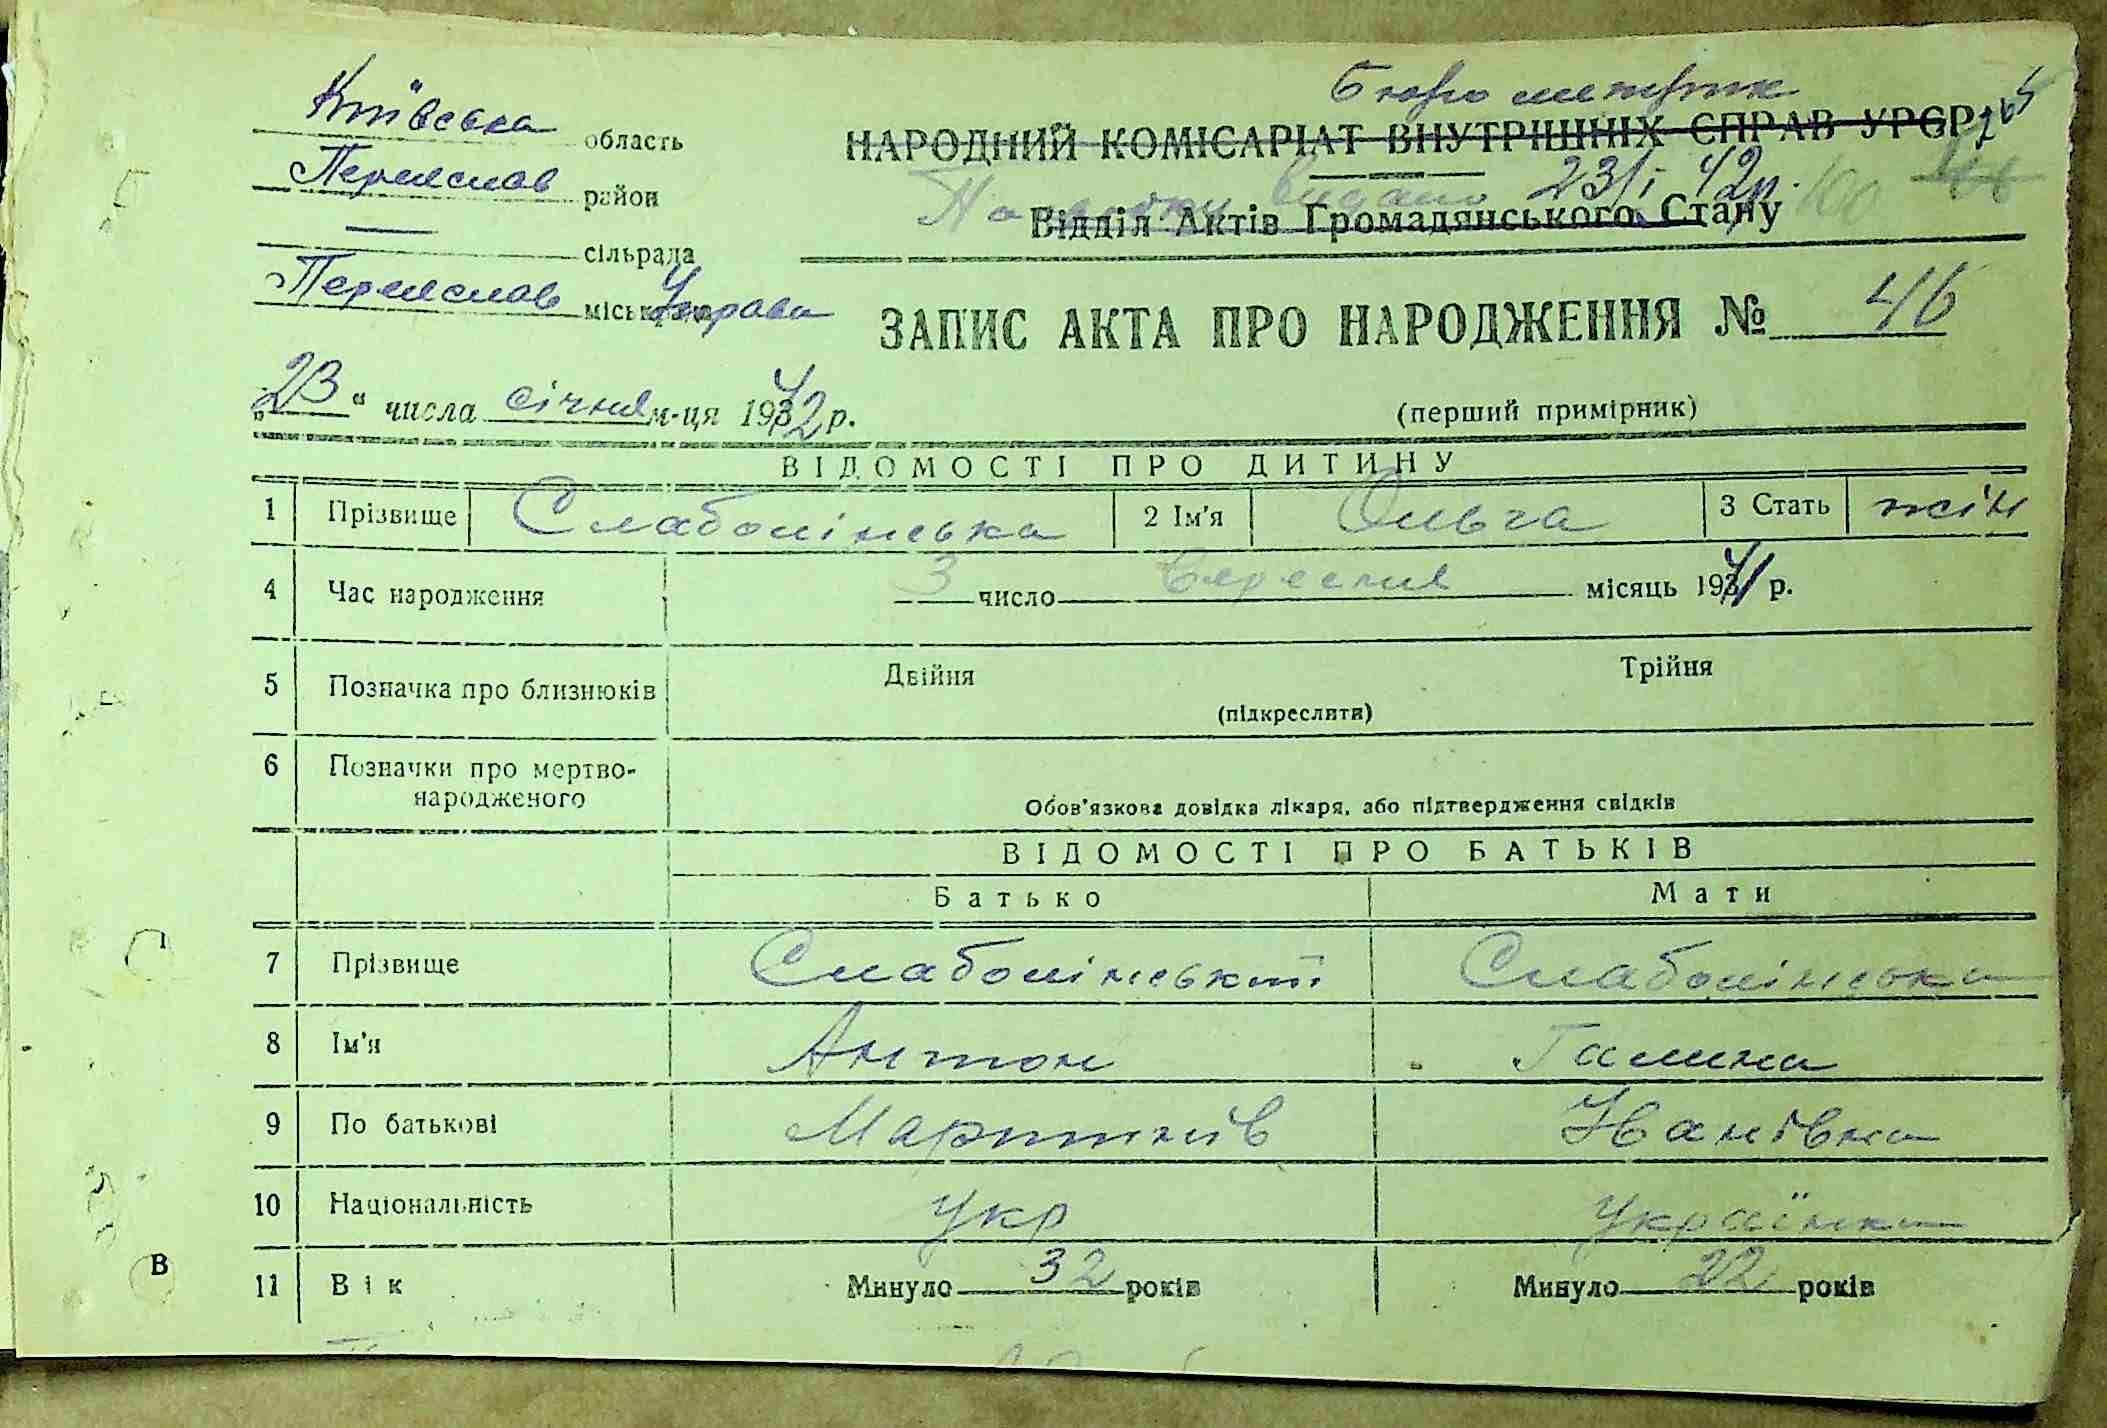 Київська область
Переяслав район
сільрада
Переяслав міськрада Управа
Бюро метрик
НАРОДНИЙ КОМІСАРІАТ ВНУТРІШНІХ СПРАВ УРСР
видано 23/I 42 р.
Відділ Актів Громадянського Стану
ЗАПИС АКТА ПРО НАРОДЖЕННЯ № 46
„23“ числа січня м-ця 1942 р.
(перший примірник)
ВІДОМОСТІ ПРО ДИТИНУ
1 Прізвище Слабошінська 2 Ім'я Ольга 3 Стать жін
4 Час народження 3 число Вересня місяць 1941 р.
5 Позначка про близнюків Двійня Трійня
(підкреслити)
6 Позначки про мертво-
народженого
Обов'язкова довідка лікаря, або підтвердження свідків
ВІДОМОСТІ ПРО БАТЬКІВ
Батько Мати
7 Прізвище Слабошінський Слабошінська
8 Ім'я Антон Галина
9 По батькові Мартинів Іванівна
10 Національність Укр Українка
11 Вік Минуло 32 років Минуло 22 років
В